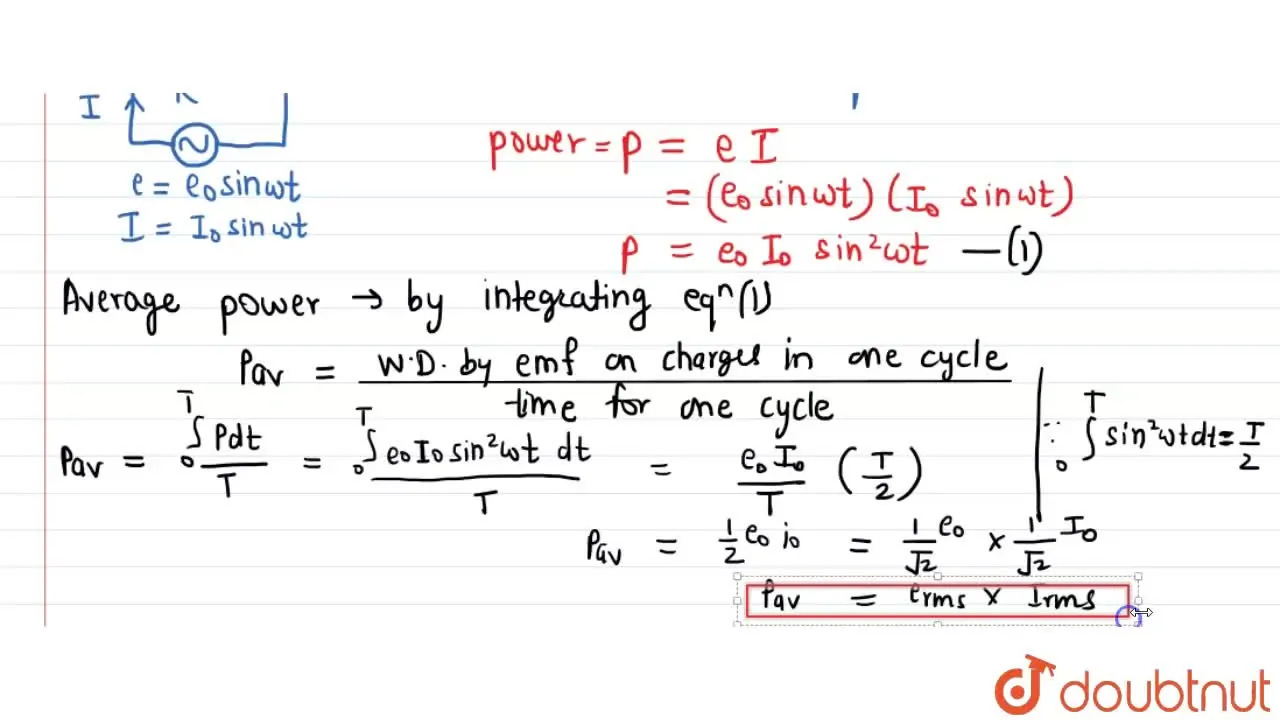 I
e = e₀ sinωt
I = I₀ sinωt
power = p = e I
= (e₀ sinωt) (I₀ sinωt)
P = e₀ I₀ sin²ωt —(1)
Average power → by integrating eqⁿ(1)
Pav = W.D. by emf on charges in one cycle
time for one cycle
Pav = ₀∫ᵀ Pdt / T = ₀∫ᵀ e₀I₀ sin²ωt dt / T = e₀ I₀ / T (T/2)
∵ ₀∫ᵀ sin²ωtdt = T/2
Pav = 1/2 e₀ i₀ = 1/√2 e₀ × 1/√2 I₀
Pav = erms × Irms
doubtnut